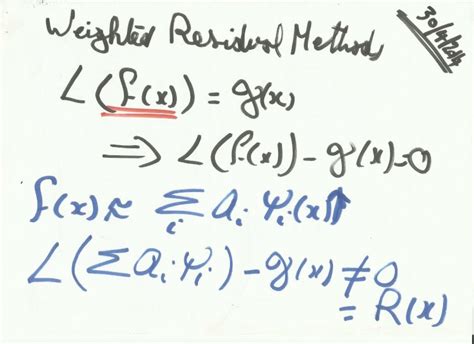 Weighted Residual Methods
30/4/2014
L(f(x)) = g(x)
⇒ L(f(x)) - g(x) = 0
f(x) ≈ Σ_i a_i Ψ_i(x)
L(Σ a_i Ψ_i) - g(x) ≠ 0
= R(x)